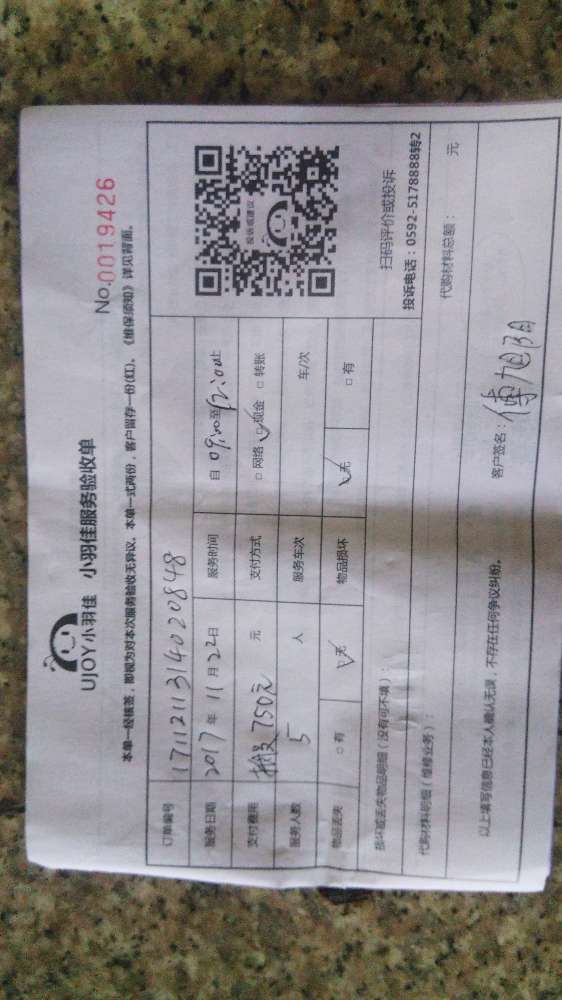 UJOY 小羽佳 小羽佳服务验收单
No.0019426
本单一经核签，即视为对本次服务验收无异议。本单一式两份，客户留存一份(红)。《维保须知》详见背面。
订单编号 171121131402084​8
服务日期 2017 年 11 月 22 日 服务时间 自 09:00 至 12:00 止
支付费用 搬运 750元 元 支付方式 □ 网络 ☑ 现金 □ 转账
服务人数 5 人 服务车次 车/次
物品丢失 □ 有 ☑ 无 物品损坏 ☑ 无 □ 有
投诉或建议
扫码评价或投诉
投诉电话：0592-5178888转2
损坏或丢失物品明细（没有可不填）：
代购材料明细（维修业务）： 代购材料总额： 元
以上填写信息已经本人确认无误，不存在任何争议纠纷。 客户签名：傅旭阳